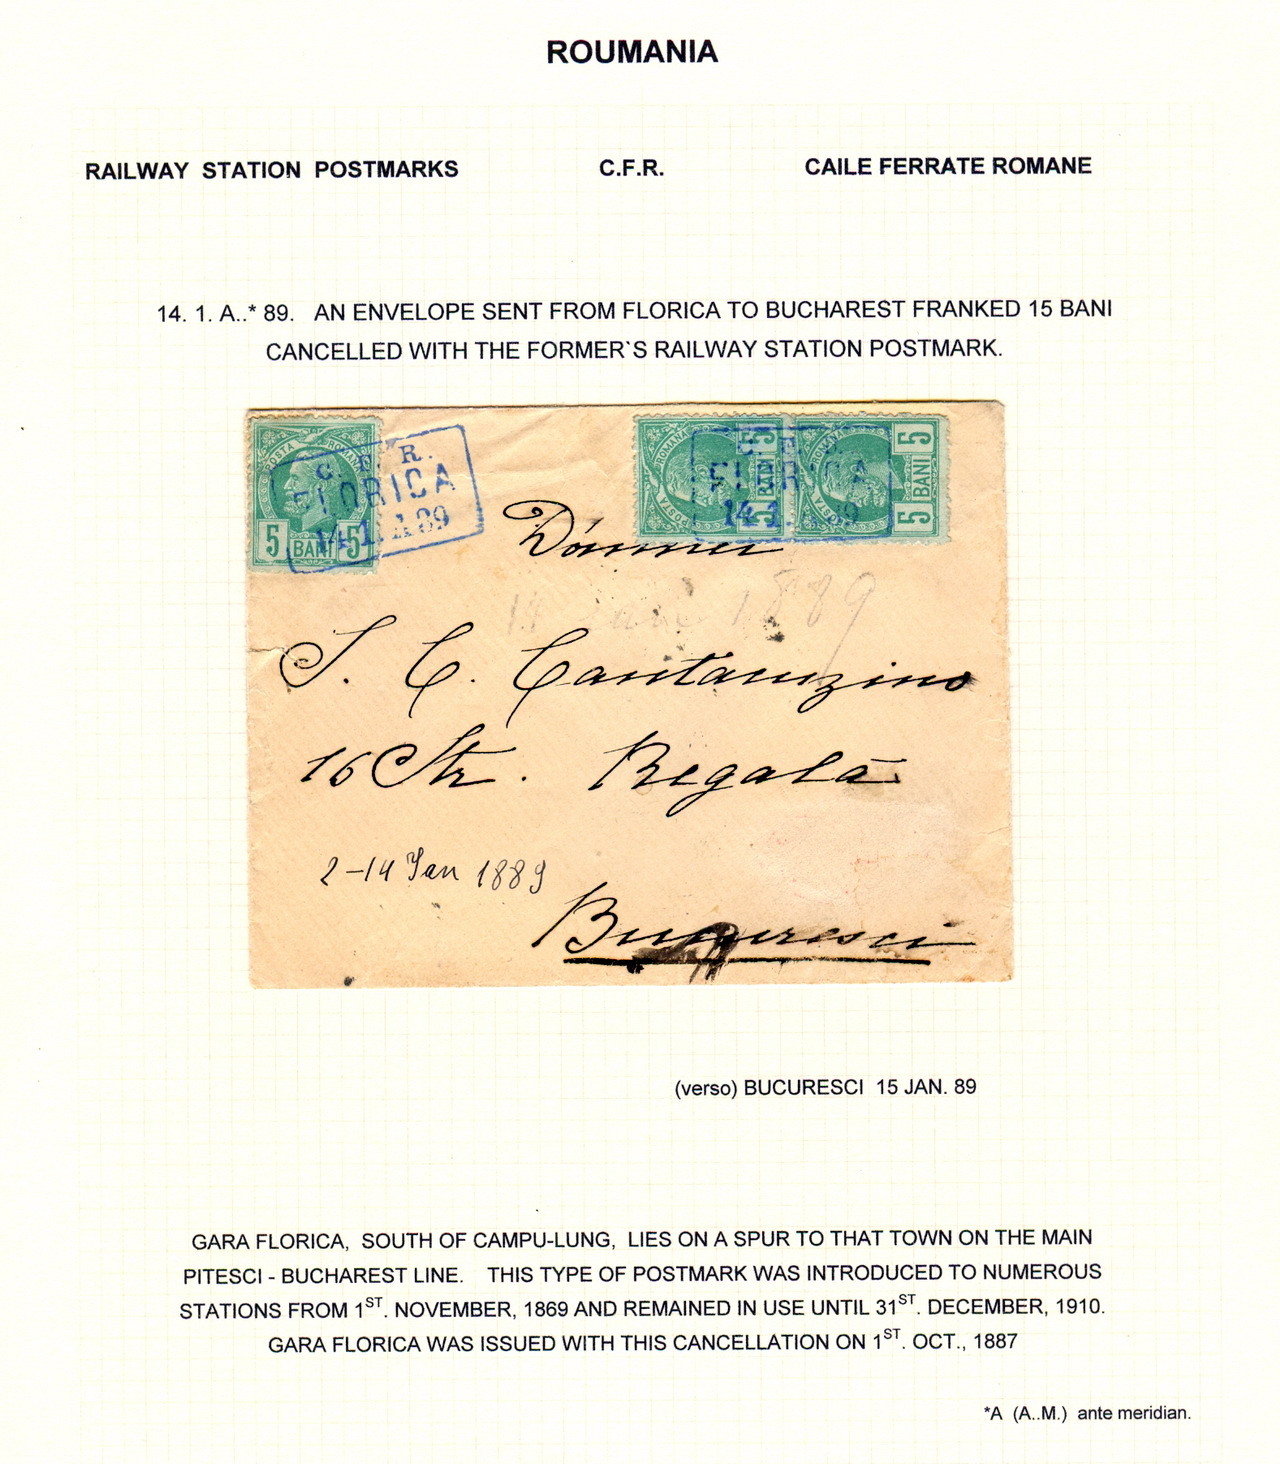 ROUMANIA
RAILWAY STATION POSTMARKS C.F.R. CAILE FERRATE ROMANE
14. 1. A..* 89. AN ENVELOPE SENT FROM FLORICA TO BUCHAREST FRANKED 15 BANI
CANCELLED WITH THE FORMER`S RAILWAY STATION POSTMARK.
POSTA ROMANA
5 BANI 5
C. F. R.
FLORICA
14. 1. A 89
POSTA ROMANA
5 BANI 5
POSTA ROMANA
5 BANI 5
FLORICA
14. 1. 89
14 1889
I. C. Cantacuzino
16 Str. Regala
2-14 Jan 1889
Bucuresci
(verso) BUCURESCI 15 JAN. 89
GARA FLORICA, SOUTH OF CAMPU-LUNG, LIES ON A SPUR TO THAT TOWN ON THE MAIN
PITESCI - BUCHAREST LINE. THIS TYPE OF POSTMARK WAS INTRODUCED TO NUMEROUS
STATIONS FROM 1ST. NOVEMBER, 1869 AND REMAINED IN USE UNTIL 31ST. DECEMBER, 1910.
GARA FLORICA WAS ISSUED WITH THIS CANCELLATION ON 1ST. OCT., 1887
*A (A..M.) ante meridian.